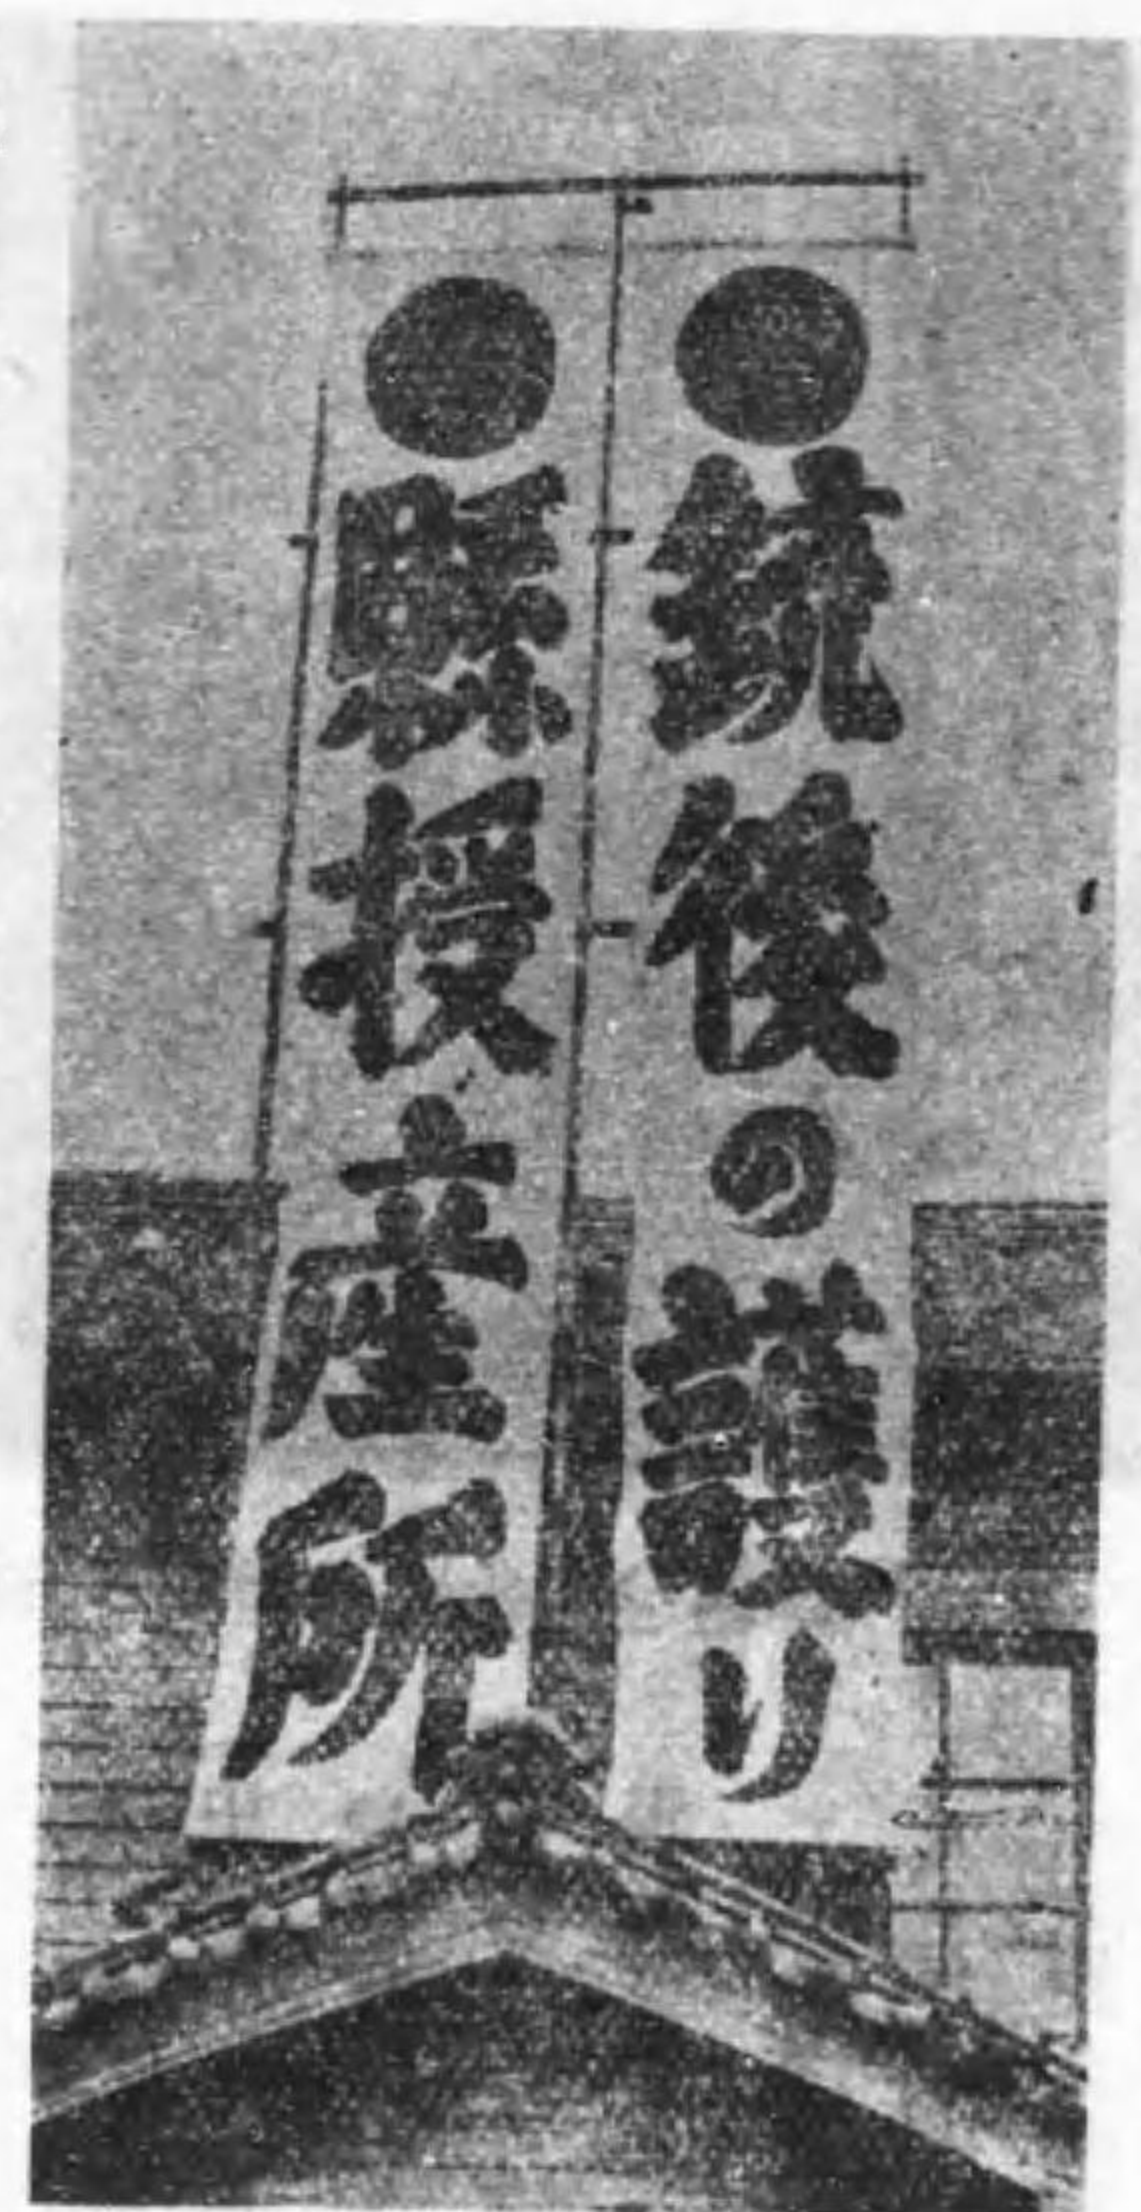 銃後の護り
縣授産所